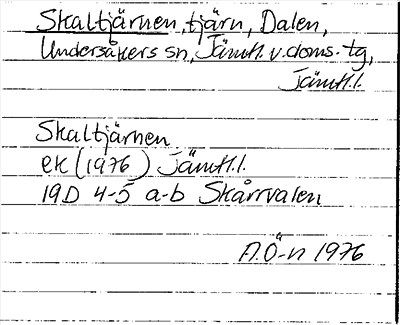 Skaltjärnen, tjärn, Dalen,
Undersåkers sn, Jämtl. v. doms. tg,
Jämtl. l.
Skaltjärnen
ek (1976) Jämtl. l.
19D 4-5 a-b Skårrvalen
A.Ö-n 1976